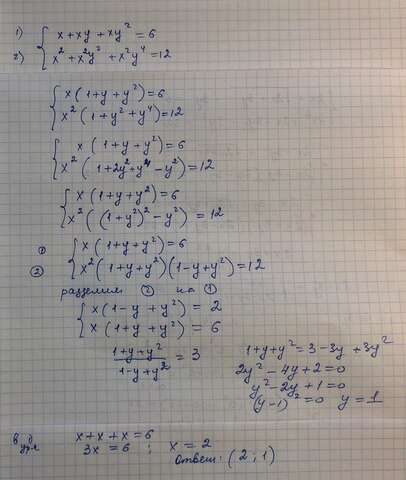 1) { x + xy + xy² = 6
2) { x² + x²y² + x²y⁴ = 12
{ x (1 + y + y²) = 6
{ x² (1 + y² + y⁴) = 12
{ x (1 + y + y²) = 6
{ x² (1 + 2y² + y⁴ - y²) = 12
{ x (1 + y + y²) = 6
{ x² ((1 + y²)² - y²) = 12
① { x (1 + y + y²) = 6
② { x² (1 + y + y²)(1 - y + y²) = 12
разделим ② на ①
{ x (1 - y + y²) = 2
{ x (1 + y + y²) = 6
(1 + y + y²) / (1 - y + y²) = 3
1 + y + y² = 3 - 3y + 3y²
2y² - 4y + 2 = 0
y² - 2y + 1 = 0
(y - 1)² = 0 y = 1
x + x + x = 6
3x = 6 ; x = 2
Ответ: (2 ; 1)